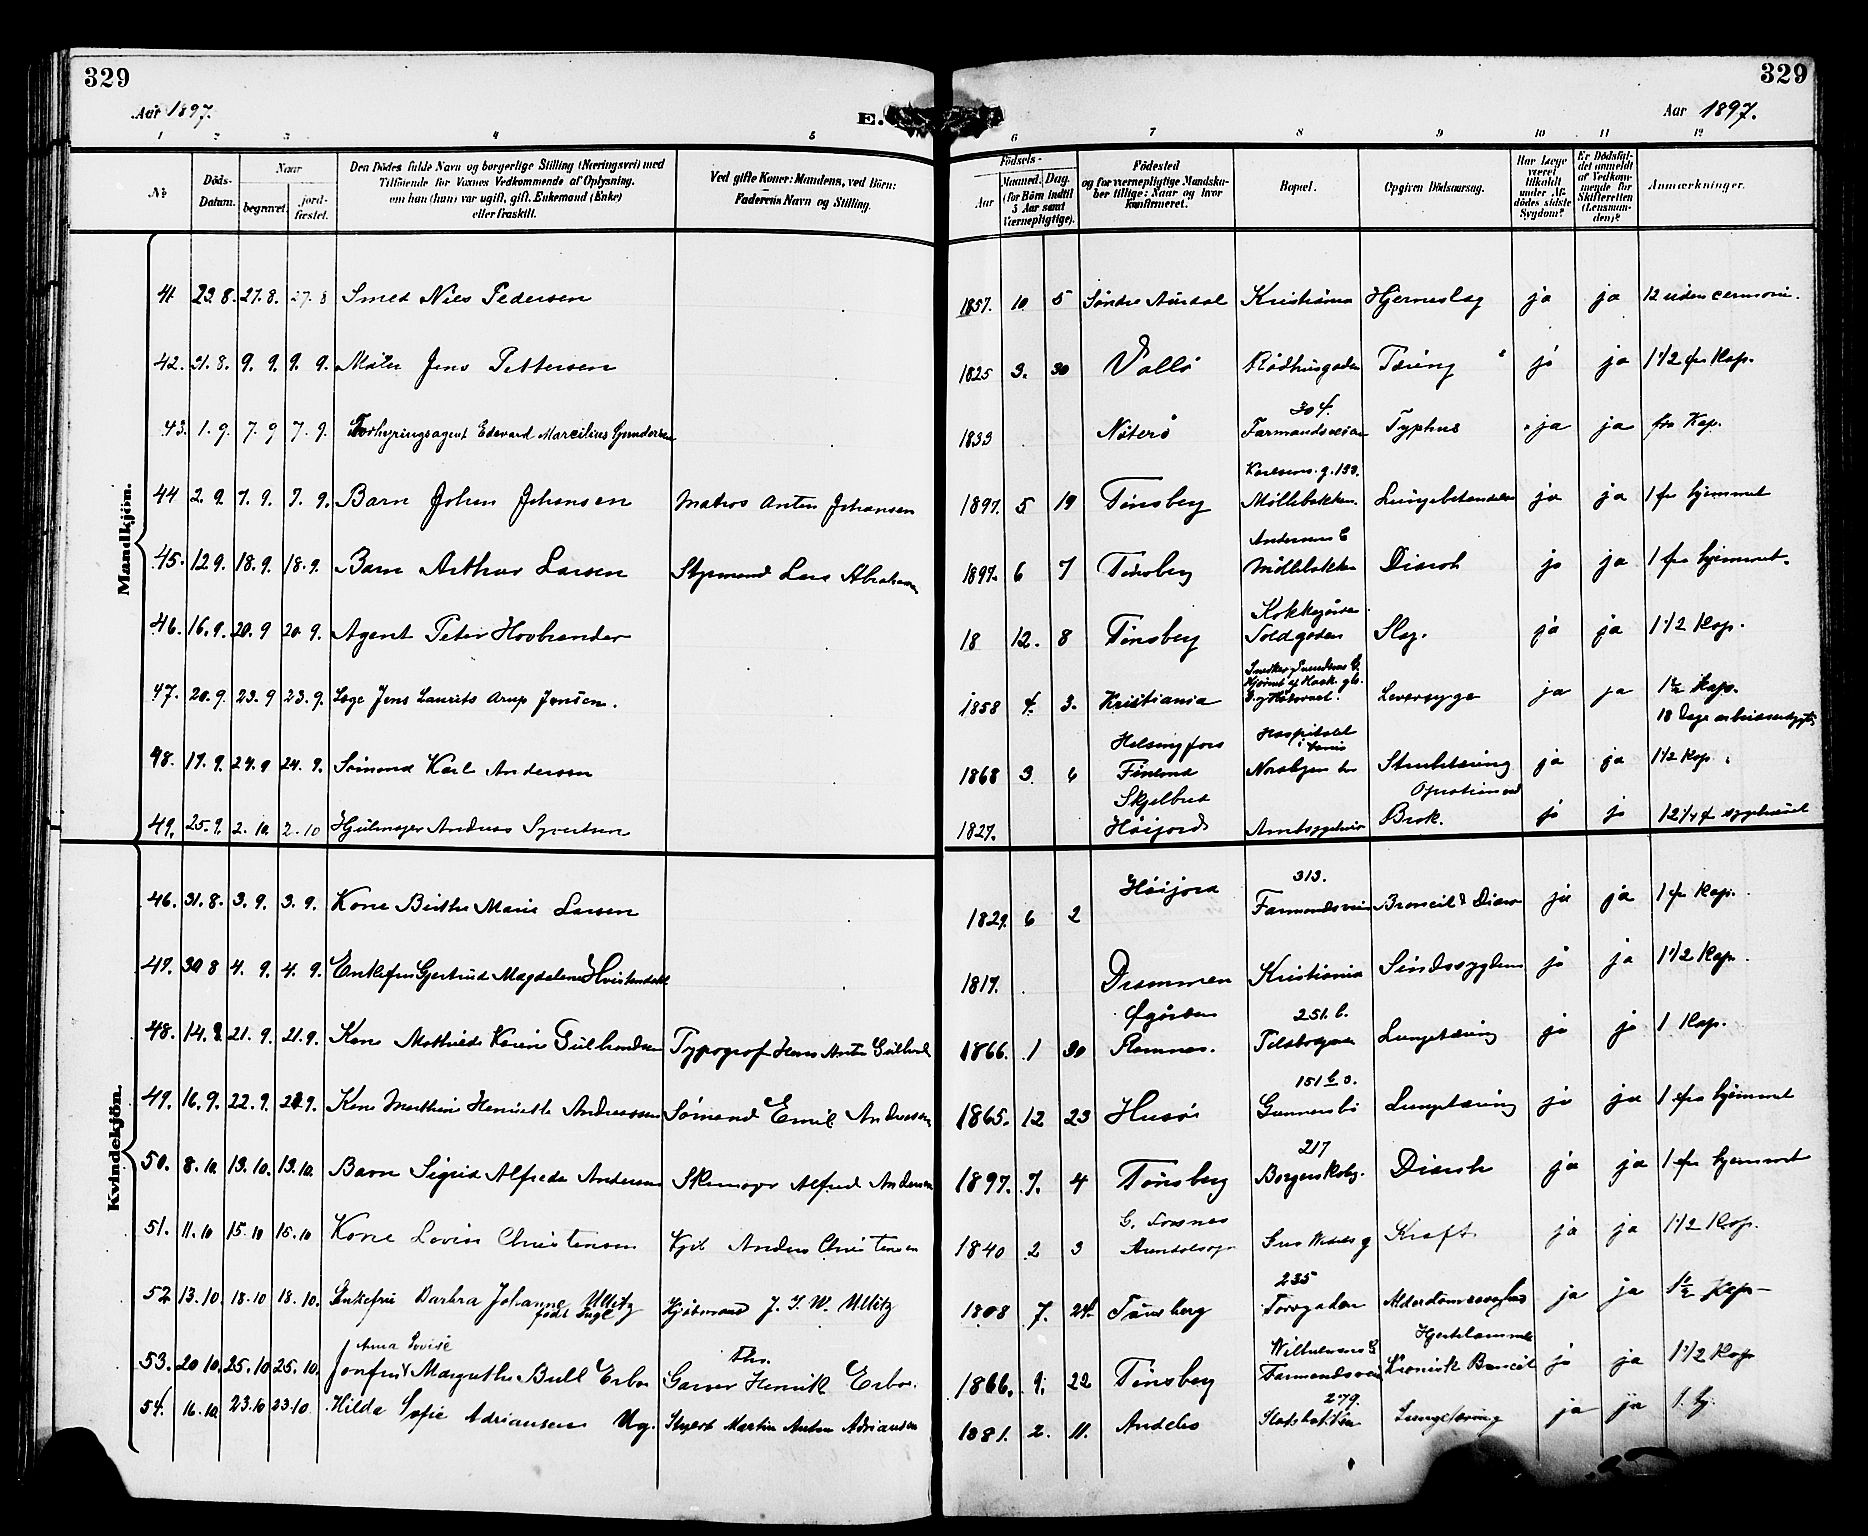 329
329
Aar 1897.
E.
Aar 1897.
1 2 3 4 5 6 7 8 9 10 11 12
No
Döds-Datum.
Naar
begravet.
jord-fæstet.
Den Dödes fulde Navn og borgerlige Stilling (Næringsvei) med
Tilföiende for Voxnes Vedkommende af Oplysning,
om han (hun) var ugift, gift, Enkemand (Enke)
eller fraskilt.
Ved gifte Koner: Mandens, ved Börn:
Faderens Navn og Stilling.
Födsels-
Aar
Maaned. Dag.
(for Börn indtil
5 Aar samt
Værnepligtige).
Födested
og for værnepligtige Mandska-
ber tillige: Naar og hvor
konfirmeret.
Bopæl.
Opgiven Dödsaarsag.
Har Læge
været
tilkaldt
under Af-
dödes sidste
Sygdom?
Er Dödsfal-
det anmeldt
af Vedkom-
mende for
Skifteretten
(Lensman-
den)?
Anmærkninger.
Mandkjön.
41 23.8. 27.8. 27.8 Smed Niels Pedersen 1857. 10 5 Søndre Aurdal Kristiania Hjerneslag ja ja 12 uden cermoni.
42. 31.8. 9.9. 9.9. Maler Jens Pettersen 1825 3. 30 Vallö Rådhusgaden Tæring ja ja 1 1/2 fra Kap.
43. 1.9. 7.9 7.9. Forhyringsagent Edevard Marcilius Gundersen 1833 Nøterø 304. Farmandsveien Typhus ja ja fra Kap.
44 2.9. 7.9. 7.9. Barn Johan Johansen Matros Anton Johansen 1897. 5 19 Tønsberg Møllebakken Lungebetændelse ja ja 1 fra hjemmet
45. 12.9. 18.9. 18.9. Barn Arthur Larsen Styrmand Lars Abrahamsen 1897. 6 7 Tønsberg Møllebakken Diaroh ja ja 1 fra hjemmet.
46. 16.9. 20.9 20.9. Agent Peter Hovbrender 18 12. 8 Tønsberg Toldgaden Slag. ja ja 1 1/2 Kap.
47. 20.9. 23.9 23.9. Læge Jens Laurits Arup Jensen. 1858 4. 3. Kristiania Leversyge ja ja 1 1/2 Kap.
48. 17.9. 24.9 24.9. Sømand Karl Andersen 1868 3. 6 Helsingfors Finland Hospitalet Strubetæring ja ja 1 1/2 Kap.
49. 25.9. 2.10. 2.10 Hjulmager Andreas Syvertsen 1827. Skjelbred Høijord Amtssygehus Operation ved Brok. ja ja
Kvindekjön.
46. 31.8. 3.9. 3.9. Kone Birthe Marie Larsen 1829. 6 2 Høijord 313. Farmandsveien ja ja 1 fra Kap.
47. 30.8 4.9. 4.9. Enkefru Gjertrud Magdalene Hvistendahl 1817. Drammen Kristiania Sindssygdom ja ja 1 1/2 Kap.
48. 14.9. 21.9. 21.9. Kone Mathilde Karine Gulbrandsen Typograf Hans Anton 1866. 1 30 Ramnes. 251.b. Lungetæring ja ja 1 Kap.
49. 16.9. 22.9. 22.9. Kone Marthine Henriette Andreassen Sømand Emil Andreassen 1865. 12 23 Husø 151 Gunnersbø Lungetæring ja ja 1 fra hjemmet
50. 8.10. 13.10. 13.10. Barn Sigrid Alfreda Andersen Skomager Alfred Andersen 1897. 7. 4 Tønsberg 217 Diaroh ja ja 1 fra hjemmet
51. 11.10 15.10 15.10 Kone Lovise Christensen Anders Christensen 1840 2 3 Kræft ja ja 1 1/2 Kap.
52 13.10. 18.10 18.10. Enkefru Barbra Johanne Ullitz født Fugl Kjøbmand J. F. W. Ullitz 1808 7. 24. Tønsberg 235 Torvgaden Alderdomssvaghed ja ja 1 1/2 Kap
53. 20.10. 25.10 25.10. Anna Lovise Jomfru Margrethe Bull Erbo Garver Henrik Erbo. 1866. 9. 22 Tønsberg Farmandsveien Kronisk ja ja 1 1/2 Kap
54. 16.10 23.10 23.10. Hilda Sofie Adriansen Ug. Martin Anton Adriansen 1881. 2. 11. Andebo 279. Lungetæring ja ja 1. hj.